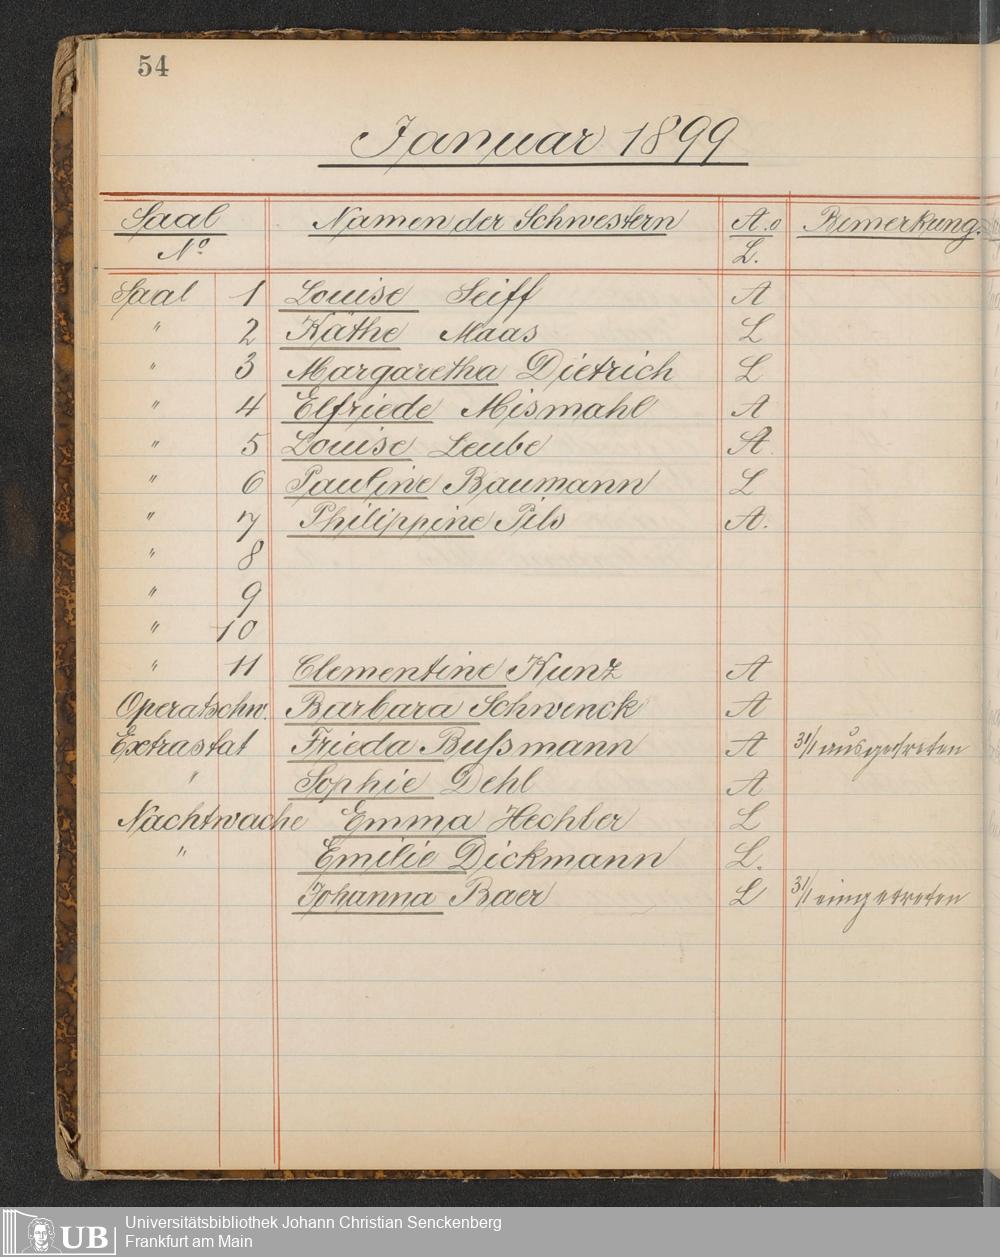 54
Januar 1899
Saal Namen der Schwestern A. o Bemerkung.
No L.
Saal 1 Louise Seiff A
" 2 Käthe Maas L
" 3 Margaretha Dietrich L
" 4 Elfriede Mismahl A
" 5 Louise Leube A.
" 6 Pauline Baumann L
" 7 Philippine Pils A.
" 8
" 9
" 10
" 11 Clementine Kunz A
Operatschw. Barbara Schwenck A
Extrastat Frieda Bußmann A 31/1 ausgetreten
" Sophie Dehl A
Nachtwache Emma Hechler L
" Emilie Dickmann L.
Johanna Baer L 31/1 eingetreten
UB Universitätsbibliothek Johann Christian Senckenberg
Frankfurt am Main